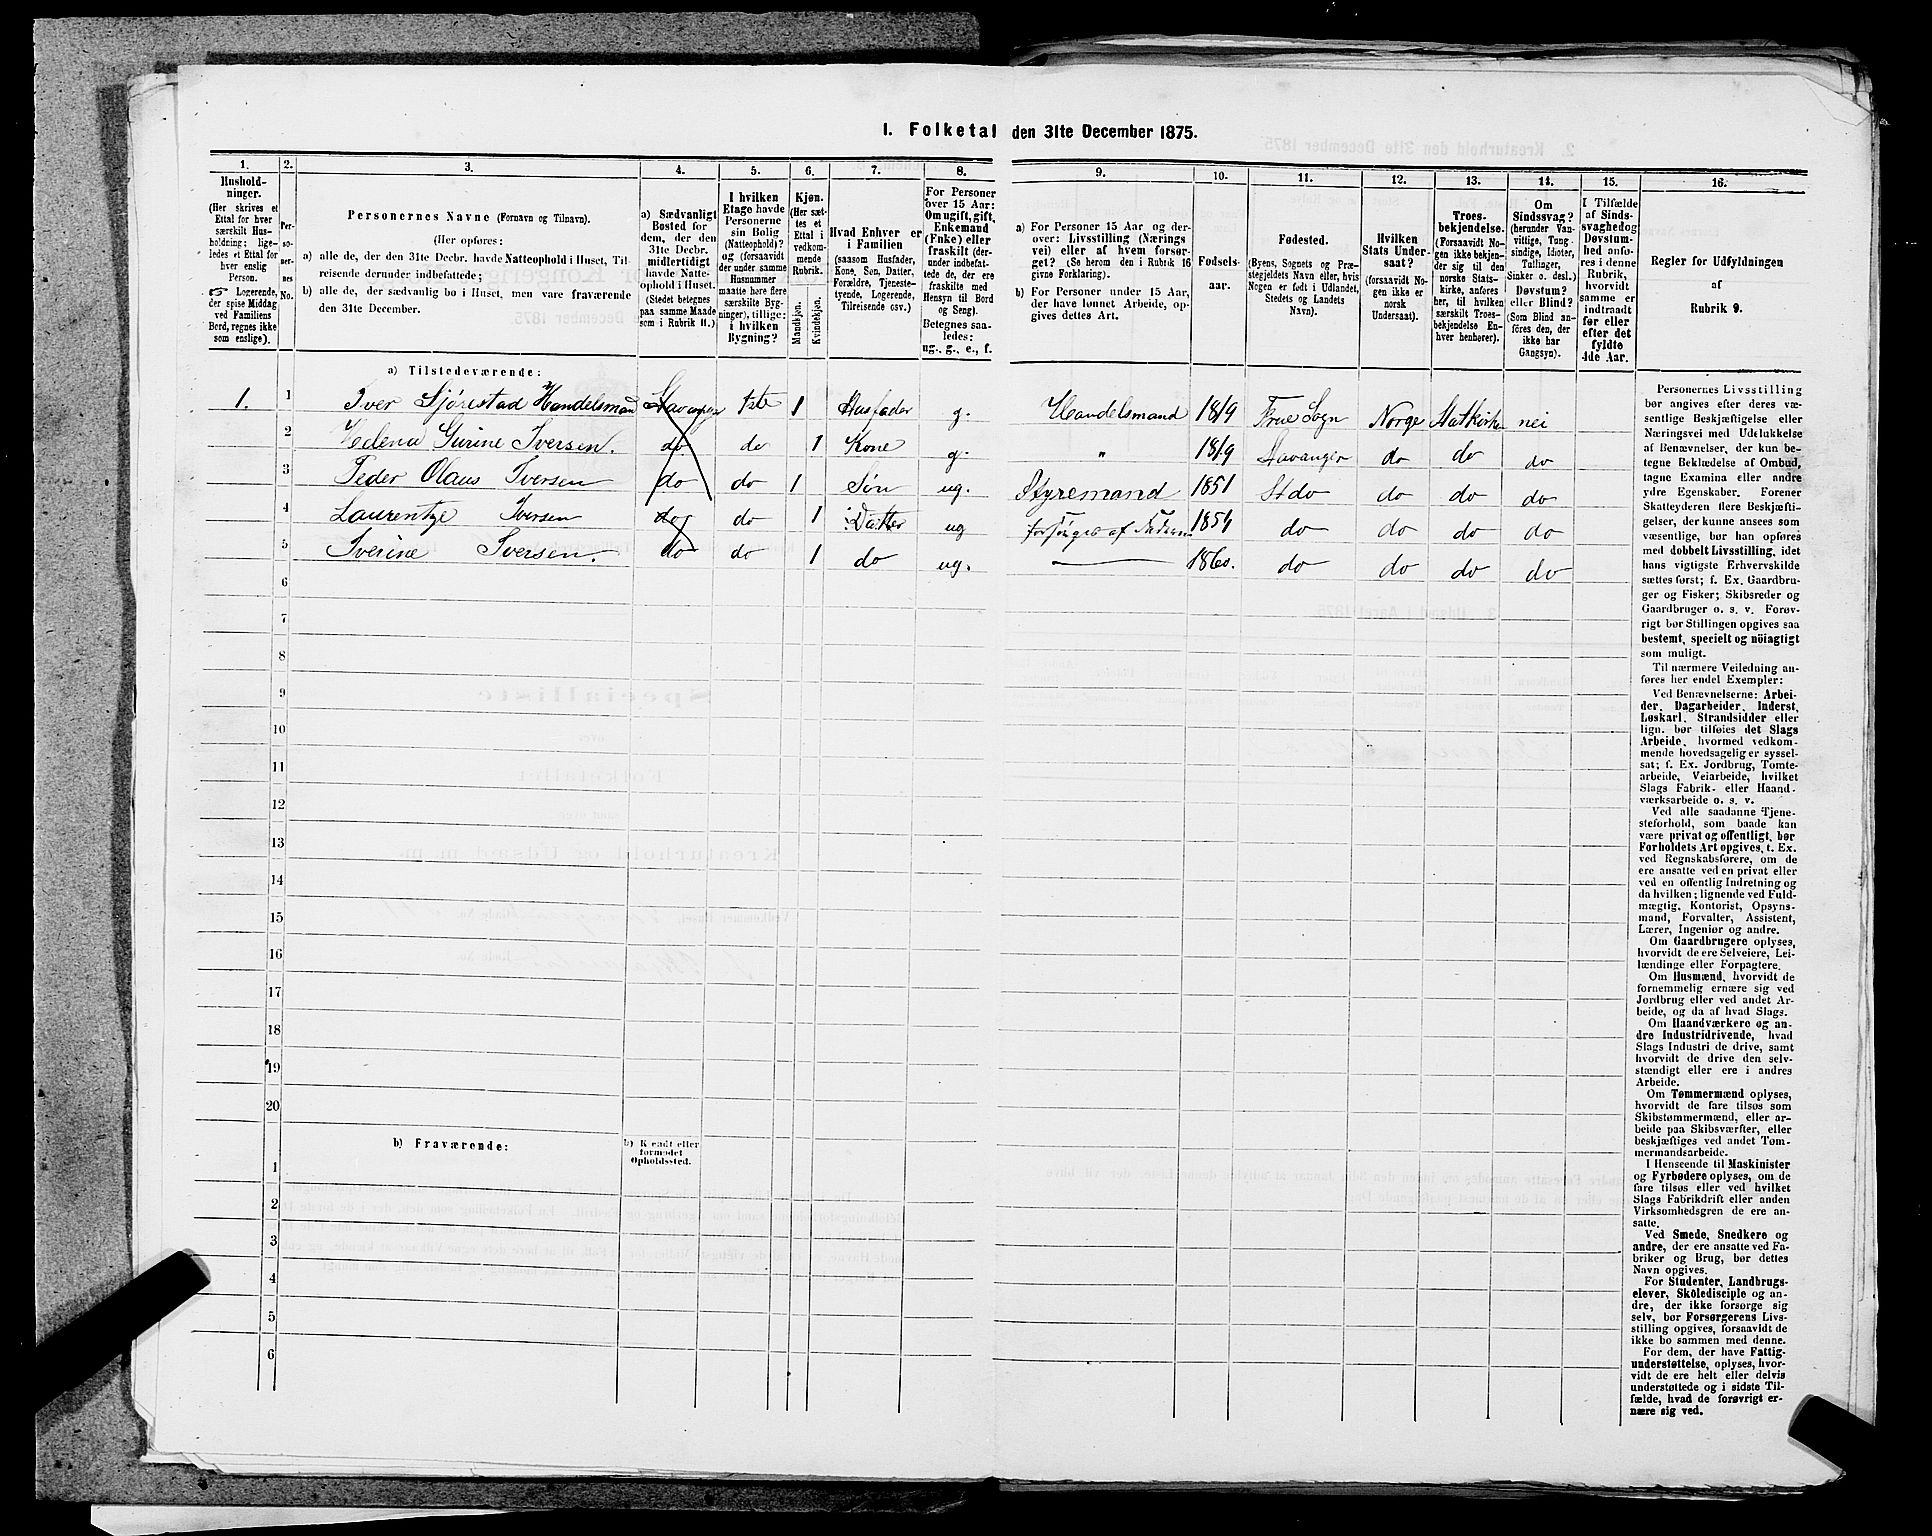 I. Folketal den 31te December 1875.
1.
Husholdninger.
(Her skrives et
Ettal for hver
særskilt Husholdning; ligeledes
et Ettal for
hver enslig
Person.
☞ Logerende,
der spise Middag
ved Familiens
Bord, regnes ikke
som enslige).
2.
Personernes
No.
3.
Personernes Navne (Fornavn og Tilnavn).
(Her opføres:
a) alle de, der den 31te Decbr. havde Natteophold i Huset, Tilreisende
derunder indbefattede;
b) alle de, der sædvanlig bo i Huset, men vare fraværende
den 31te December.
4.
a) Sædvanligt
Bosted for
dem, der den
31te Decbr.
midlertidigt
havde Natteophold
i Huset.
(Stedet betegnes
paa samme Maade
som i Rubrik 11.)
5.
I hvilken
Etage havde
Personerne
sin Bolig
(Natteophold)?
og (forsaavidt
der under samme
Husnummer
maatte høre flere
særskilte Bygninger),
tillige:
i hvilken
Bygning?
6.
Kjøn.
(Her sættes
et
Ettal i
vedkommende
Rubrik.
Mandkjøn.
Kvindekjøn.
7.
Hvad Enhver er
i Familien
(saasom Husfader,
Kone, Søn, Datter,
Forældre, Tjenestetyende,
Logerende,
Tilreisende osv.)
8.
For Personer
over 15 Aar:
Om ugift, gift,
Enkemand
(Enke) eller
fraskilt (derunder
indbefattede
de, der ere
fraskilte med
Hensyn til Bord
og Seng).
Betegnes saaledes:
ug., g., e., f.
9.
a) For Personer 15 Aar og derover:
Livsstilling (Næringsvei)
eller af hvem forsørget?
(Se herom den i Rubrik 16
givne Forklaring).
b) For Personer under 15 Aar,
der have lønnet Arbeide, opgives
dettes Art.
10.
Fødselsaar.
11.
Fødested.
(Byens, Sognets og Præstegjeldets
Navn eller, hvis
Nogen er født i Udlandet,
Stedets og Landets
Navn).
12.
Hvilken
Stats Undersaat?
(forsaavidt Nogen
ikke er
norsk
Undersaat).
13.
Troesbekjendelse.
(Forsaavidt Nogen
ikke bekjender
sig til den
norske Statskirke,
anføres
her, til hvilken
særskilt Troesbekjendelse
Enhver
henhører).
14.
Om
Sindssvag?
(herunder Vanvittige,
Tungsindige,
Idioter,
Tullinger,
Sinker o. desl.)
Døvstum?
eller Blind?
(Som Blind anføres
den, der
ikke har
Gangsyn).
15.
I Tilfælde
af Sindssvaghed
og
Døvstumhed
anføres
i denne
Rubrik,
hvorvidt
samme er
indtraadt
før eller
efter det
fyldte
4de Aar.
16.
Regler for Udfyldningen
af
Rubrik 9.
a) Tilstedeværende:
1. 1 Iver Sjørestad Handelsmand Stavanger 1ste 1 Husfader g. Handelsmand 1819 Frue Sogn Norge Statkirke nei
2 Helena Gurine Iversen. do do 1 Kone g. " 1819 Stavanger do do do
3 Peder Olaus Iversen do do 1 Søn ug. Styremand 1851 St do do do do
4 Laurentze Iversen do do 1 Datter ug forsørges af Faderen 1854 do do do do
5 Iverine Iversen. do do 1 do ug. 1860. do do do do
6
7
8
9
10
11
12
13
14
15
16
17
18
19
20
b) Fraværende:
b) Kjendt eller
formodet
Opholdssted.
1
2
3
4
5
6
Personernes Livsstilling
bør angives efter deres væsentlige
Beskjæftigelse eller
Næringsvei med Udelukkelse
af Benævnelser, der kun betegne
Beklædelse af Ombud,
tagne Examina eller andre
ydre Egenskaber. Forener
Skatteyderen flere Beskjæftigelser,
der kunne ansees som
væsentlige, bør han opføres
med dobbelt Livsstilling, idet
hans vigtigste Erhvervskilde
sættes først; f. Ex. Gaardbruger
og Fisker; Skibsreder og
Gaardbruger o. s. v. Forøvrigt
bør Stillingen opgives saa
bestemt, specielt og nöiagtigt
som muligt.
Til nærmere Veiledning anføres
her endel Exempler:
Ved Benævnelserne: Arbeider,
Dagarbeider, Inderst,
Løskarl, Strandsidder eller
lign. bør tilføies det Slags
Arbeide, hvormed vedkommende
hovedsagelig er sysselsat;
f. Ex. Jordbrug, Tomtearbeide,
Veiarbeide, hvilket
Slags Fabrik- eller Haandværksarbeide
o. s. v.
Ved alle saadanne Tjenesteforhold,
som baade kan
være privat og offentligt, bør
Forholdets Art opgives, t. Ex.
ved Regnskabsførere, om de
ere ansatte ved en privat eller
ved en offentlig Indretning og
da hvilken; lignende ved Fuldmægtig,
Kontorist, Opsynsmand,
Forvalter, Assistent,
Lærer, Ingeniør og andre.
Om Gaardbrugere oplyses,
hvorvidt de ere Selveiere, Leilændinge
eller Forpagtere.
Om Husmænd, hvorvidt de
fornemmelig ernære sig ved
Jordbrug eller ved andet Arbeide,
og da af hvad Slags.
Om Haandværkere og andre
Industridrivende, hvad
Slags Industri de drive, samt
hvorvidt de drive den selvstændigt
eller ere i andres
Arbeide.
Om Tømmermænd oplyses,
hvorvidt de fare tilsøs som
Skibstømmermænd, eller arbeide
paa Skibsværfter, eller
beskjæftiges ved andet Tømmermandsarbeide.
I Henseende til Maskinister
og Fyrbødere oplyses, om de
fare tilsøs eller ved hvilket
Slags Fabrikdrift eller anden
Virksomhedsgren de ere ansatte.
Ved Smede, Snedkere og
andre, der ere ansatte ved Fabriker
og Brug, bør dettes
Navn opgives.
For Studenter, Landbrugselever,
Skoledisciple og andre,
der ikke forsørge sig
selv, bør Forsørgerens Livsstilling
opgives, forsaavidt de
ikke bo sammen med denne.
For dem, der have Fattigunderstøttelse,
oplyses, hvorvidt
de ere helt eller delvis
understøttede og i sidste Tilfælde,
hvad de forøvrigt ernære
sig ved.